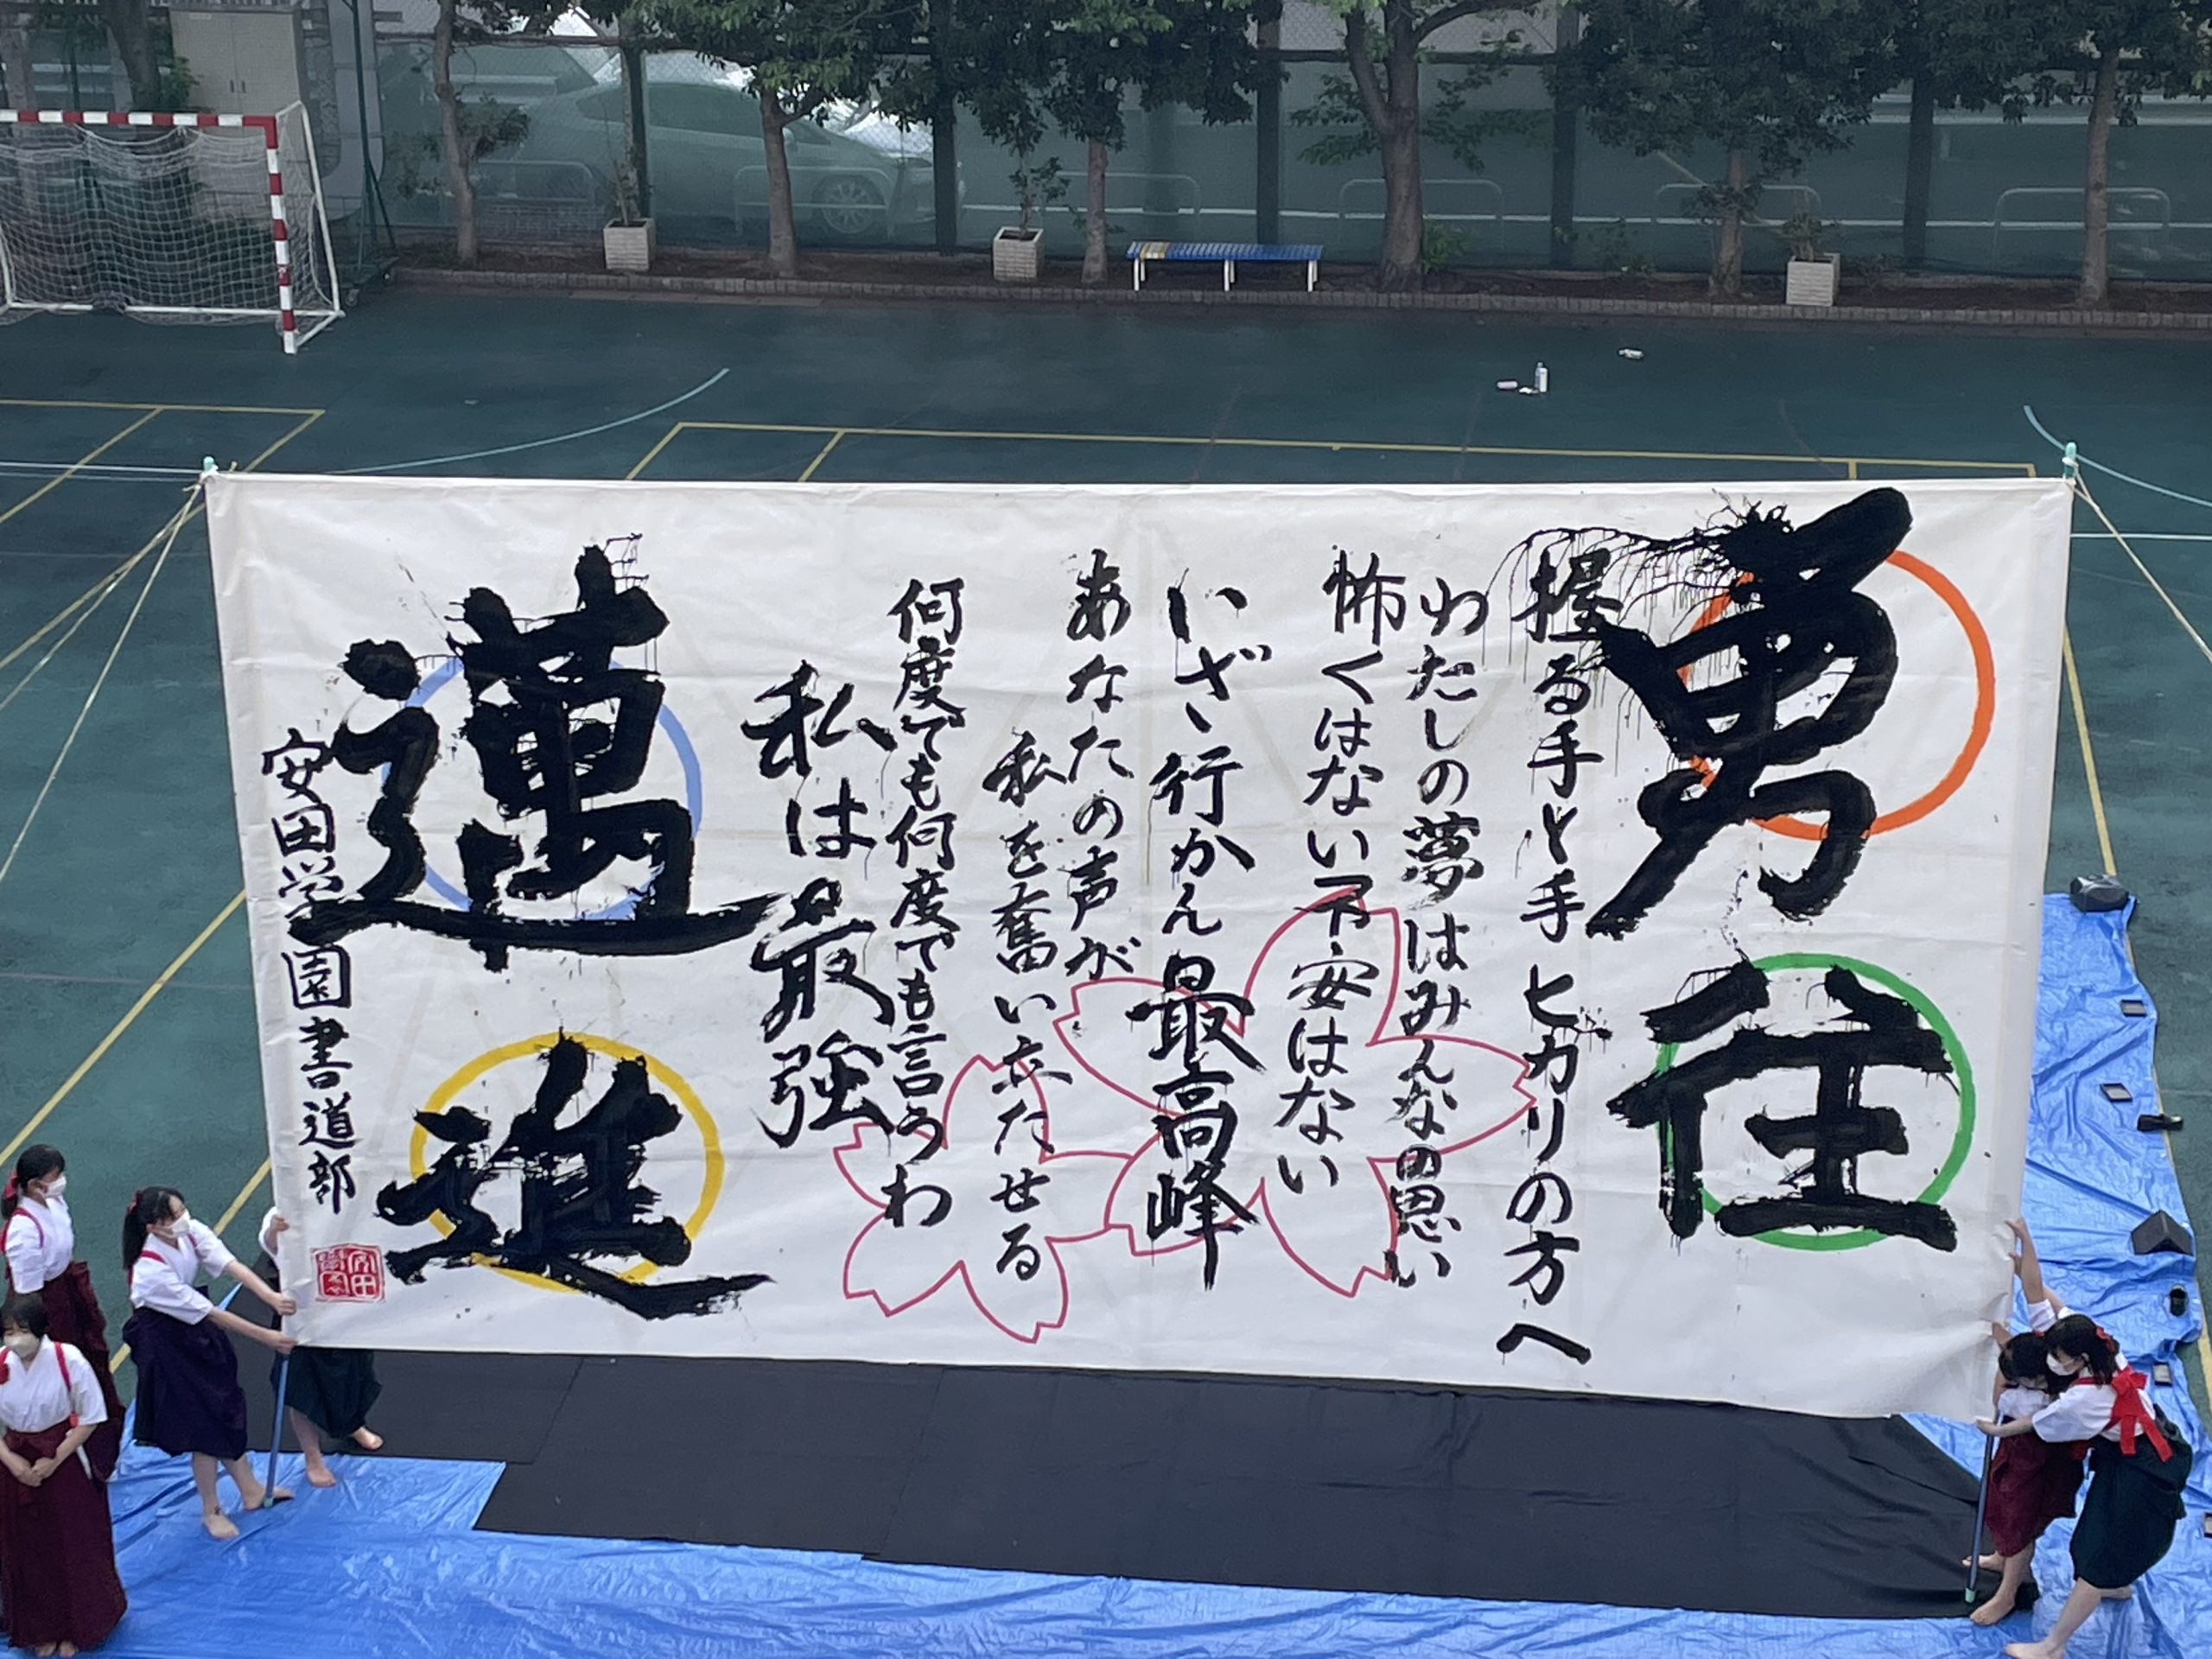 勇往
握る手と手 ヒカリの方へ
わたしの夢はみんなの思い
怖くはない 不安はない
いざ、行かん 最高峰
あなたの声が
私を奮い立たせる
何度でも何度でも言うわ
私は最強
邁進
安田学園書道部